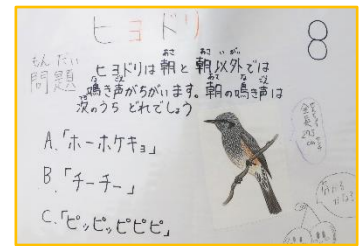 ヒヨドリ
8
問題
ヒヨドリは朝と朝以外では
鳴き声がちがいます。朝の鳴き声は
次のうち どれでしょう
A.「ホーホケキョ」
B.「チーチー」
C.「ピッピッピピピ」